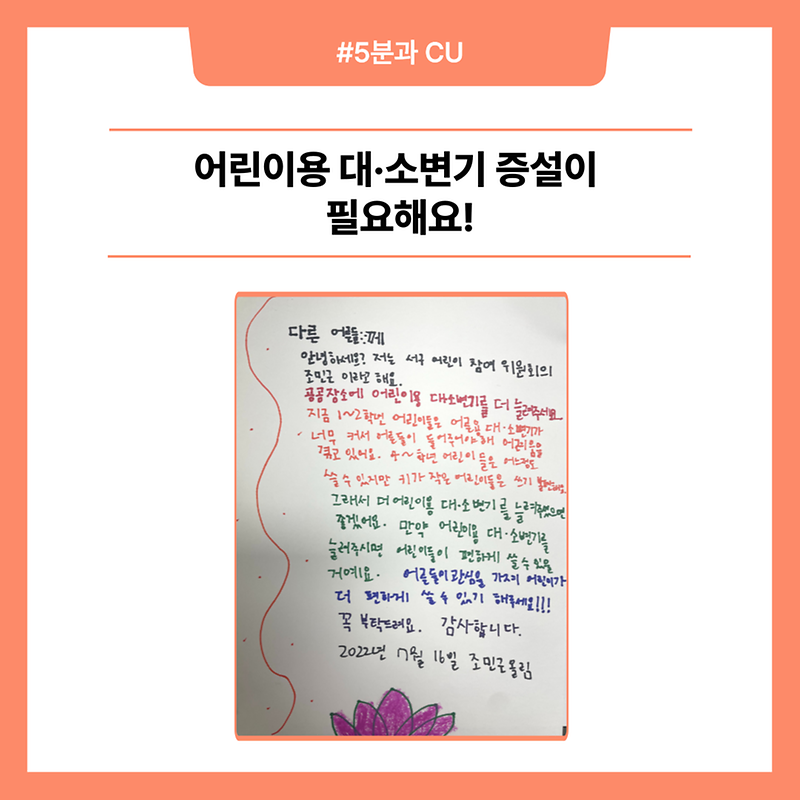 #5분과 CU
어린이용 대·소변기 증설이
필요해요!
다른 어른들께
안녕하세요? 저는 서구 어린이 참여 위원회의
조민근 이라고 해요.
공공장소에 어린이용 대소변기를 더 늘려주세요
지금 1~2학년 어린이들은 어른용 대·소변기가
너무 커서 어른들이 들어주어야해 어려움을
겪고 있어요. 4~학년 어린이들은 어느정도
쓸 수 있지만 키가 작은 어린이들은 쓰기 불편해요.
그래서 더 어린이용 대·소변기를 늘려주었으면
좋겠어요. 만약 어린이용 대·소변기를
늘려주시면 어린이들이 편하게 쓸 수 있을
거예요. 어른들이 관심을 가지기 어린이가
더 편하게 쓸 수 있기 해주세요!!!
꼭 부탁드려요. 감사합니다.
2022년 7월 16일 조민근올림